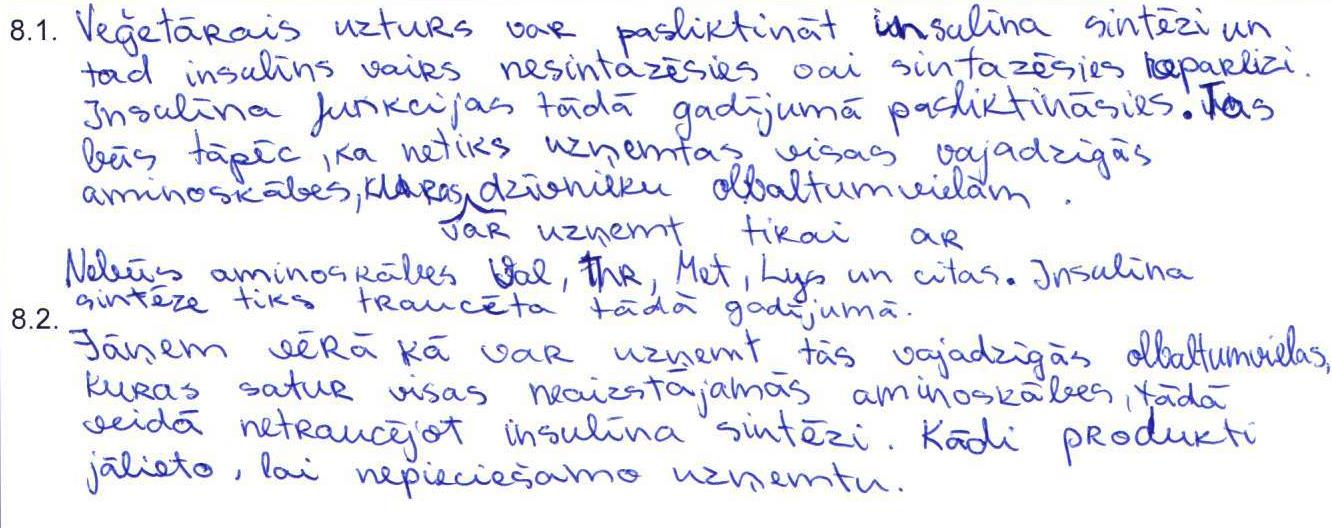 8.1. Veģetārais uzturs var pasliktināt insulīna sintēzi un
tad insulīns vairs nesintazēsies vai sintazēsies nepareizi.
Insulīna funkcijas tādā gadījumā pasliktināsies. Tas
būs tāpēc, ka netiks uzņemtas visas vajadzīgās
aminoskābes, kuras dzīvnieku olbaltumvielām.
var uzņemt tikai ar
Nebūs aminoskābes Val, Thr, Met, Lys un citas. Insulīna
sintēze tiks traucēta tādā gadījumā.
8.2. Jāņem vērā kā var uzņemt tās vajadzīgās olbaltumvielas,
kuras satur visas neaizstājamās aminoskābes, tādā
veidā netraucējot insulīna sintēzi. Kādi produkti
jālieto, lai nepieciešamo uzņemtu.